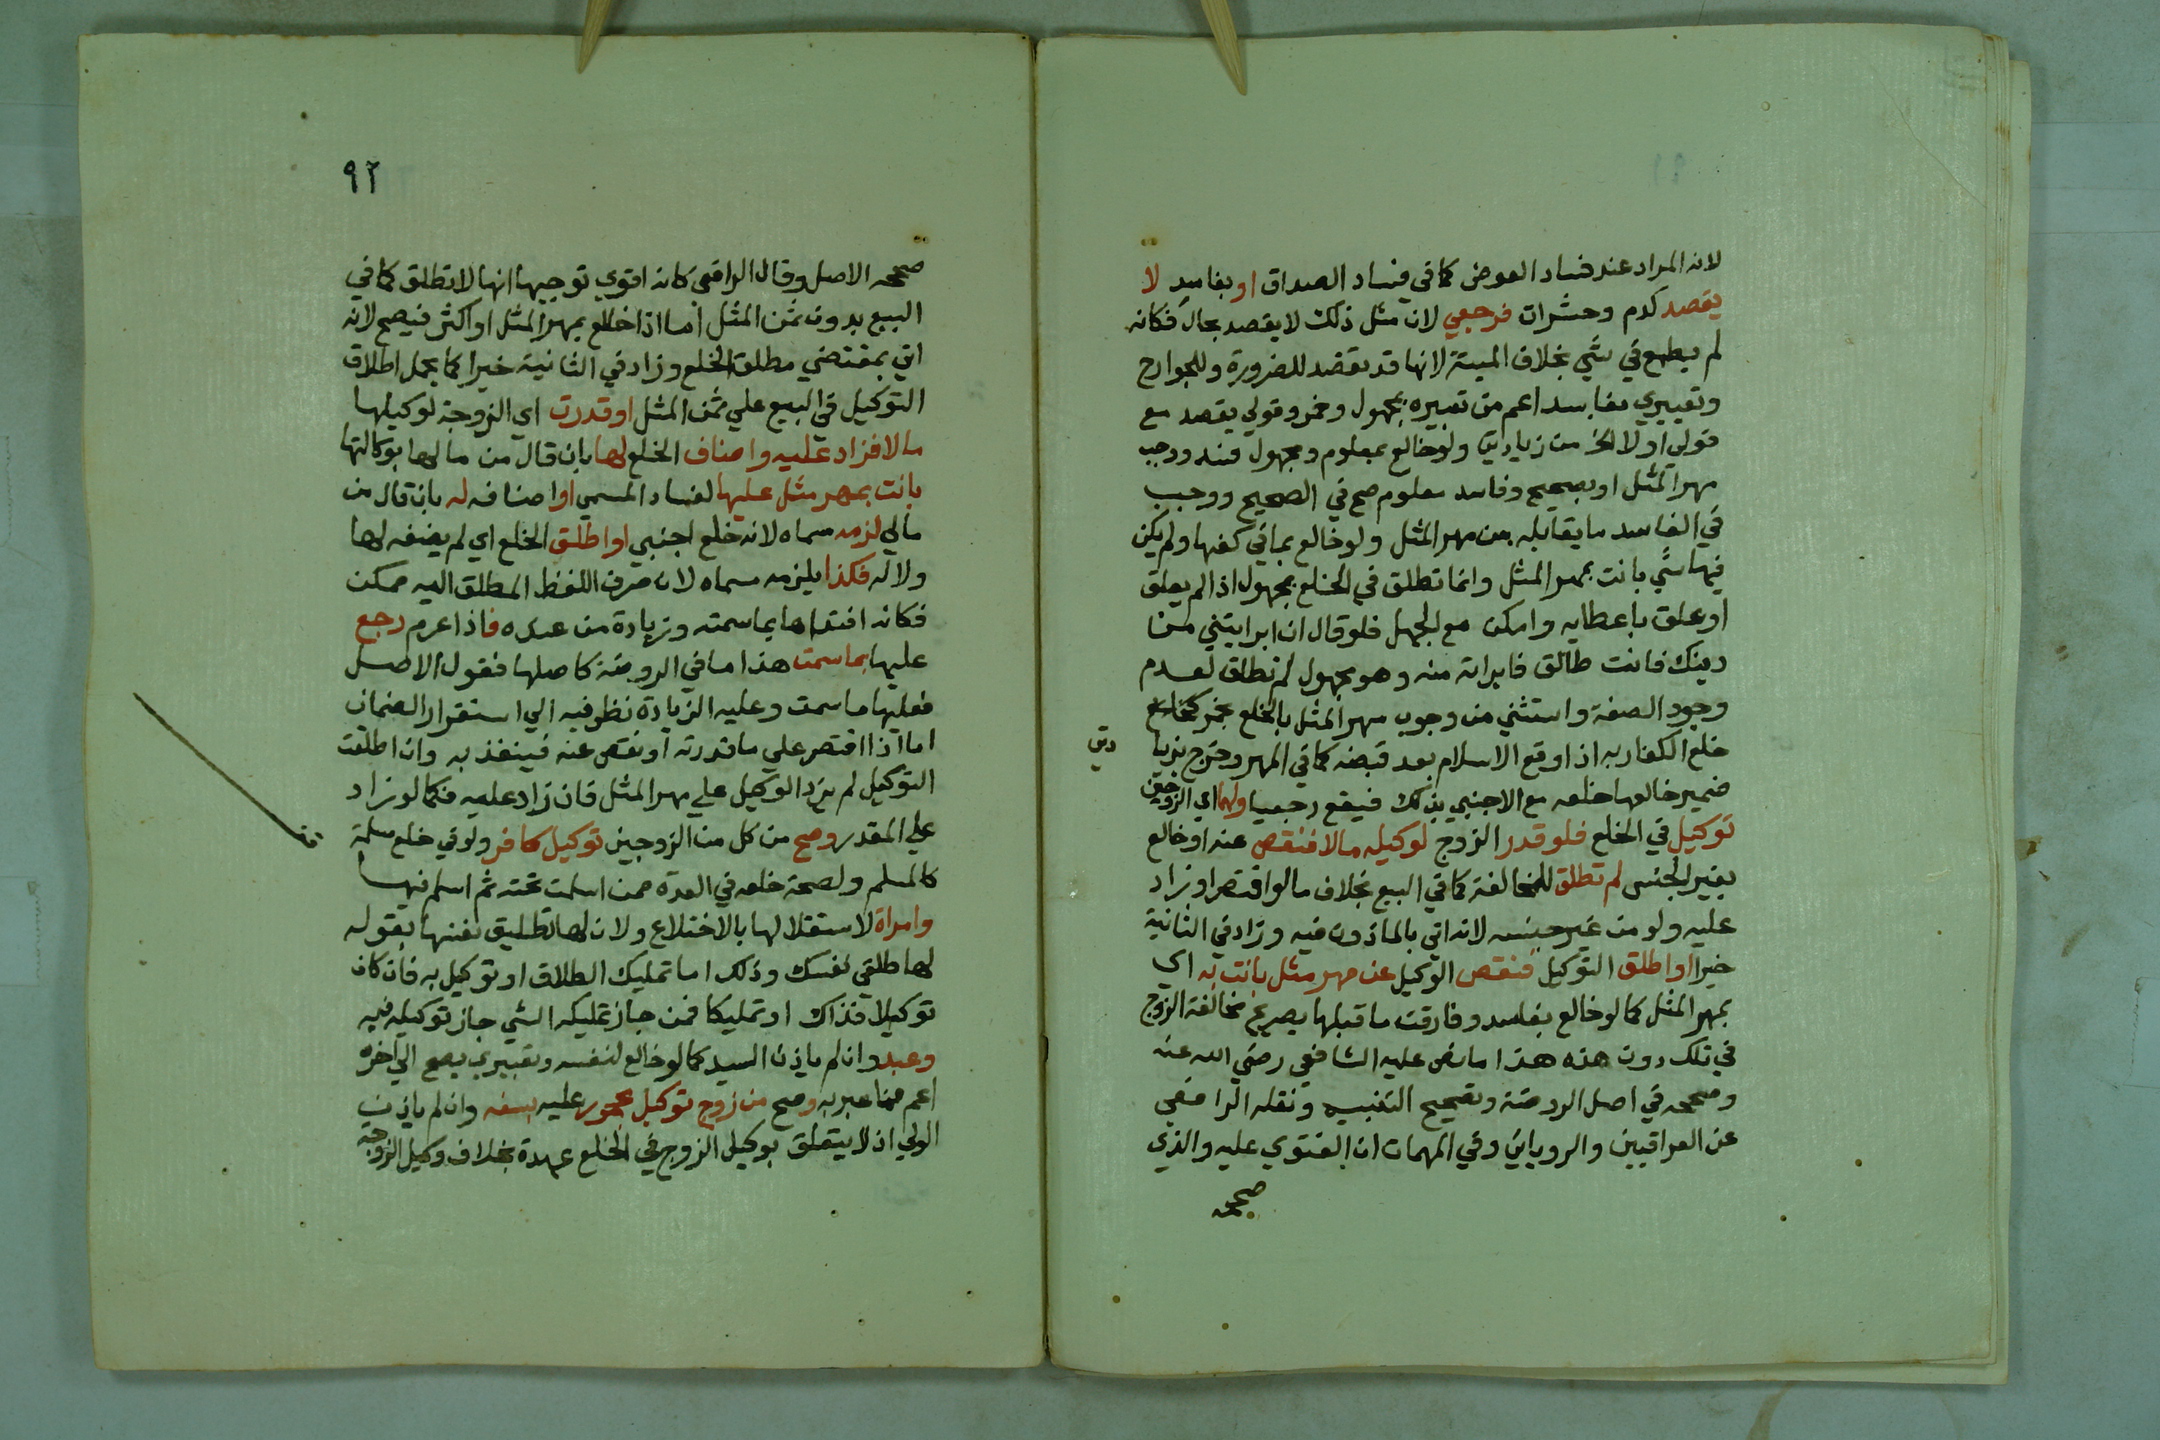 لانه المراد عند فساد العوض كما في فساد الصداق او بفاسد لا
يقصد كدم وحشرات فرجعي لان مثل ذلك لا يقصد بحال فكانه
لم يطمع في شي بخلاف الميتة لانها قد تقصد للضرورة وللجوارح
وتعبيري بفاسد اعم من تعبيره بمجهول وخمر وقولي يقصد مع
قولي او لا الخ من زيادتي ولو خالع بمعلوم ومجهول فسد ووجب
مهر المثل او بصحيح وفاسد معلوم صح في الصحيح ووجب
في الفاسد ما يقابله من مهر المثل ولو خالع بما في كفها ولم يكن
فيها شي بانت بمهر المثل وانما تطلق في الخلع بمجهول اذا لم يعلق
او علق باعطايه وامكن مع الجهل فلو قال ان ابرايتني من
دينك فانت طالق فابراته منه وهو مجهول لم تطلق لعدم
وجود الصفة واستثني من وجوب مهر المثل بالخلع بخمر
خلع الكفار به اذا وقع الاسلام بعد قبضه كما في المهر وخرج بزيا
دتي
ضمير خالعها خلعه مع الاجنبي بذلك فيقع رجعيا ولهما اي الزوجين
توكيل في الخلع فلو قدر الزوج لوكيله مالا فنقص عنه او خالع
بغير الجنس لم تطلق للمخالفة كما في البيع بخلاف ما لو اقتصر او زاد
عليه ولو من غير جنسه لانه اتي بالماذون فيه وزاد في الثانية
خيرا او اطلق التوكيل فنقص الوكيل عن مهر مثل بانت به اي
بمهر المثل كما لو خالع بفاسد وفارقت ما قبلها بصريح مخالفة الزوج
في تلك دون هذه هذا ما نص عليه الشافعي رضي الله عنه
وصححه في اصل الروضة وتصحيح التنبيه ونقله الرافعي
عن العراقيين والروياني وفي المهمات ان الفتوي عليه والذي
صححه
٩٢
صححه الاصل وقال الرافعي كانه اقوي توجيها انها لا تطلق كما في
البيع بدون ثمن المثل اما اذا خالع بمهر المثل او اكثر فيصح لانه
اتي بمقتضي مطلق الخلع وزاد في الثانية خيرا كما يحمل اطلاق
التوكيل في البيع علي ثمن المثل او قدرت اي الزوجة لوكيلها
مالا فزاد عليه واضاف الخلع لها بان قال من مالها بوكالتها
بانت بمهر مثل عليها لفساد المسمي او اضافه له بان قال من
مالي لزمه مسماه لانه خلع اجنبي او اطلق الخلع اي لم يضفه لها
ولا له فكذا يلزمه مسماه لان صرف اللفظ المطلق اليه ممكن
فكانه افتداها بما سمته وزيادة من عنده فاذا غرم رجع
عليها بما سمت هذا ما في الروضة كاصلها فقول الاصل
فعليها ما سمت وعليه الزيادة نظر فيه الي استقرار الضمان
اما اذا اقتصر علي ما قدرته او نقص عنه فينفذ به وان اطلقت
التوكيل لم يزد الوكيل علي مهر المثل فان زاد عليه فكما لو زاد
علي المقدر وصح من كل من الزوجين توكيل كافر ولو في خلع مسلمة
كالمسلم ولصحة خلعه في العدة ممن اسلمت تحته ثم اسلم فيها
وامراة لاستقلالها بالاختلاع ولان لها تطليق نفسها بقوله
لها طلقي نفسك وذلك اما تمليك الطلاق او توكيل به فان كان
توكيلا فذاك او تمليكا فمن جاز تمليكه الشي جاز توكيله فيه
وعبد وان لم ياذن السيد كما لو خالع لنفسه وتعبيري بصح الي اخره
اعم مما عبر به وصح من زوج توكيل محجور عليه بسفه وان لم ياذن
الولي اذ لا يتعلق بوكيل الزوج في الخلع عهدة بخلاف وكيل الزوجة